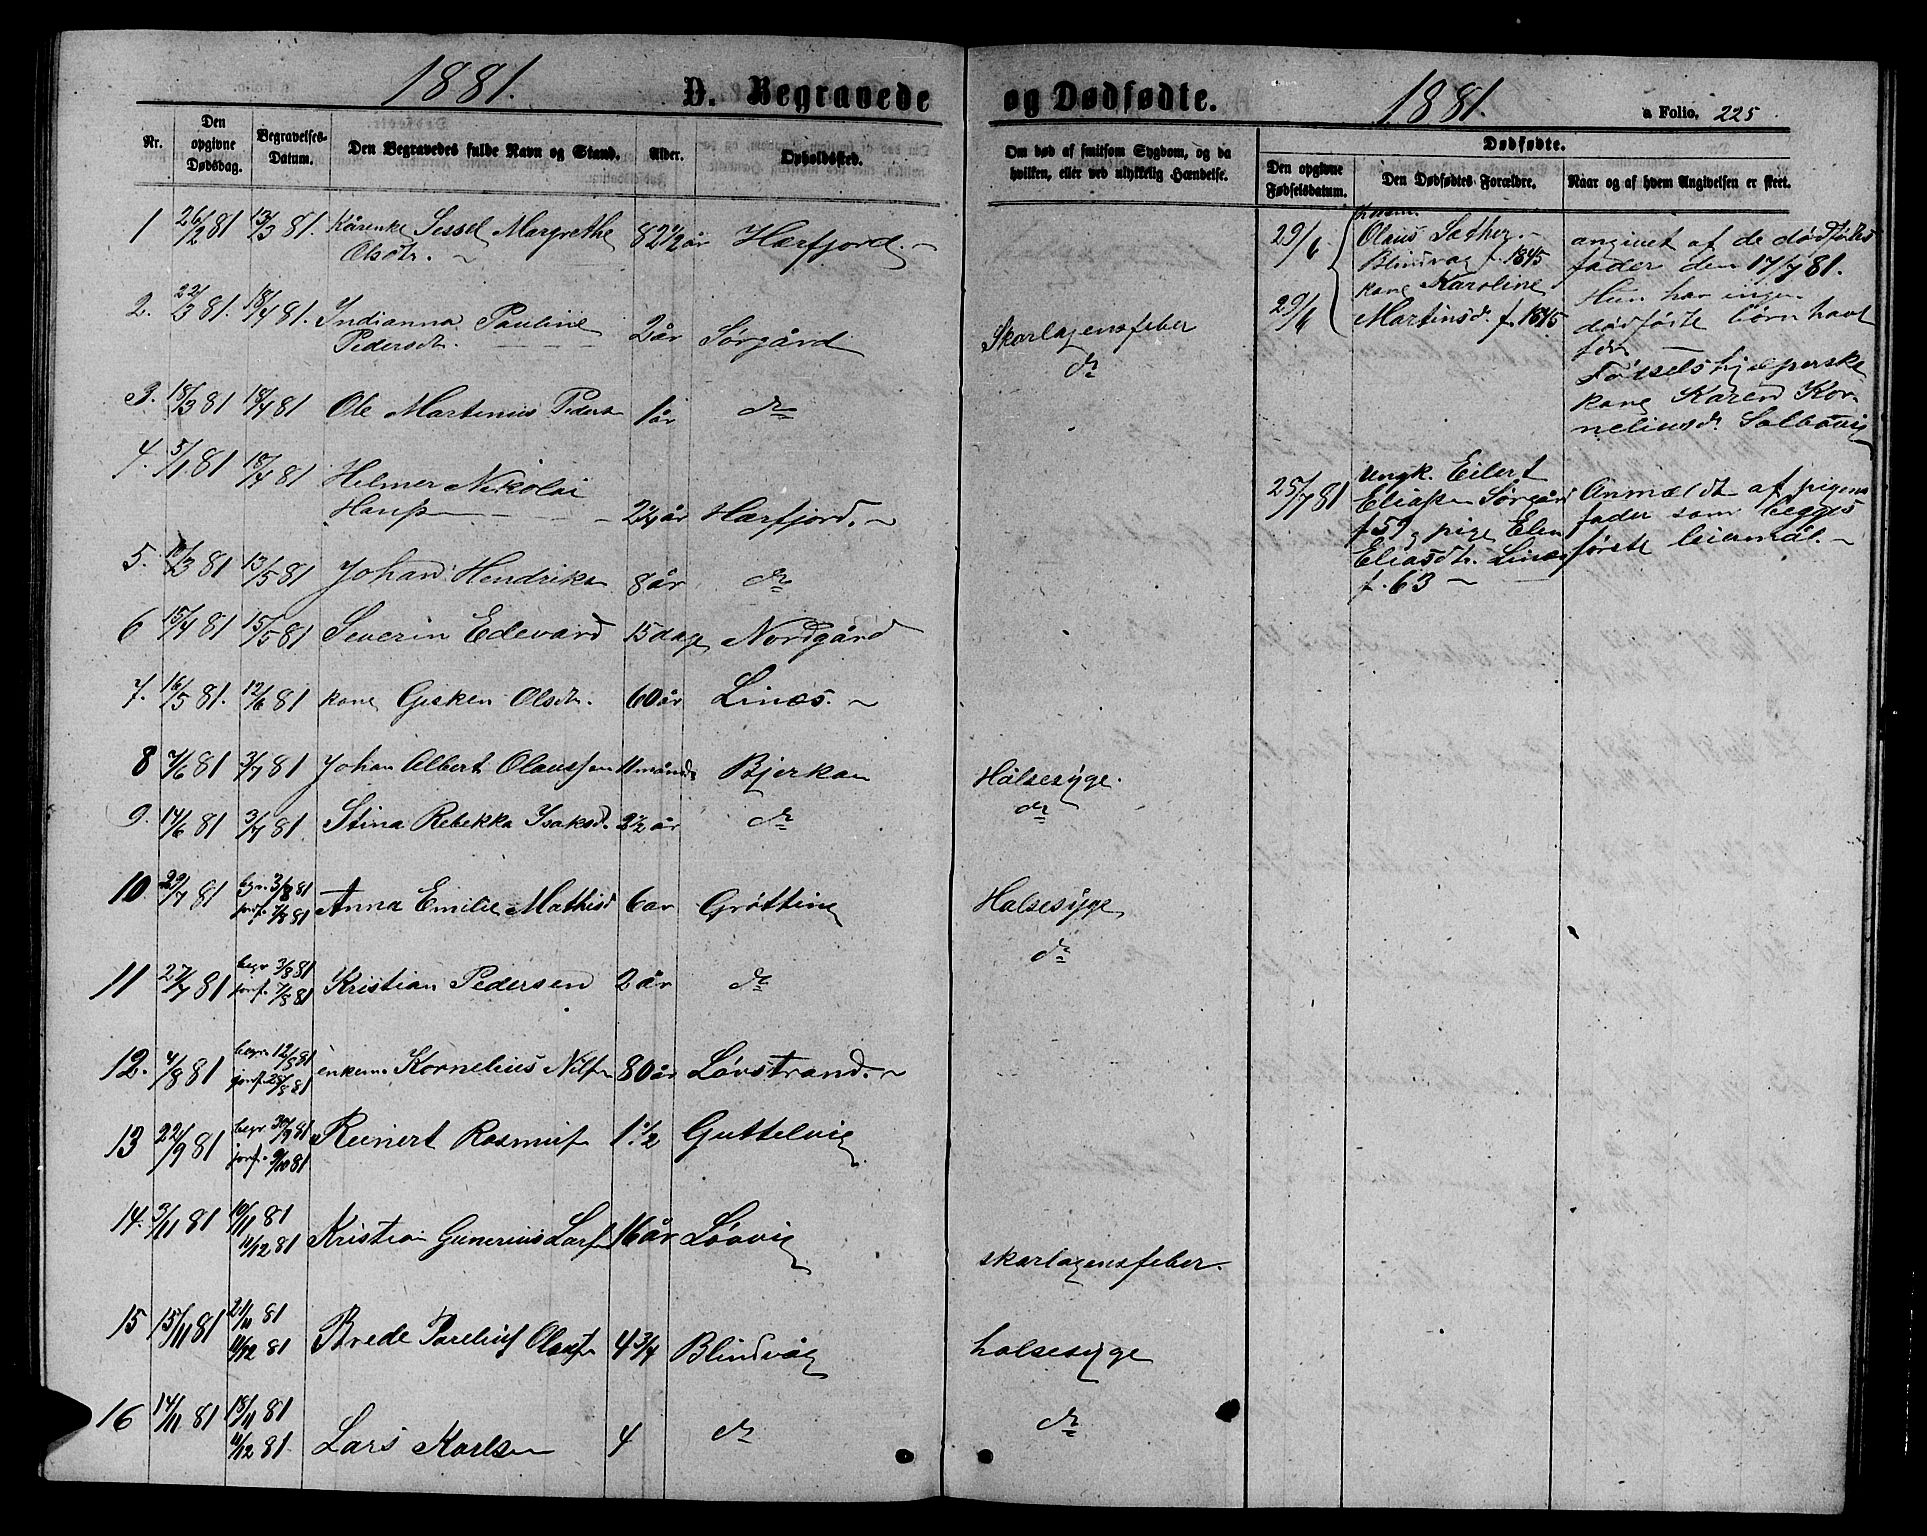 1881.
D. Begravede
og Dødfødte.
1881.
a Folio. 225
Nr.
Den opgivne Dødsdag.
Begravelses-Datum.
Den Begravedes fulde Navn og Stand.
Alder.
Opholdssted.
Om død af smitsom Sygdom, og da hvilken, eller ved ulykkelig Hændelse.
Dødfødte.
Den opgivne Fødselsdatum.
Den Dødfødtes Forældre.
Naar og af hvem Angivelsen er skeet.
1 26/2 81 13/3 81. Sessel Margrethe 82 1/2 år Hærfjord.
Olsdtr.
2. 22/3 81. 18/4 81. Indianna Pauline 2år Sørgård Skarlagensfeber
Pedersdt.
3. 18/3 81 18/4 81 Ole Martinus Peders 1år do do
4. 5/1 81 18/4 81 Helmer Nikolai
2 1/4 år Hærfjord.
5. 13/5 81 Johan Hendriks 8år do
6 15/4 81 15/5 81 Severin Edevard 15 dage Nordgård
7. 16/5 81. 12/6 81 kone Gjsken Olsdtr. 60 år Linæs.
8 7/6 81 3/7 81 Johan Albert Olaussen 11 månd Bjerkan Halsesyge.
9. 14/6 81 3/7 81 Stina Rebekka Isaksd. 2 1/2 år do do
10. 29/7 81 begr. 3/8 81
jordf. 7/8 81 Anna Emilie Mathisd 6 år Grøtting Halsesyge
11 27/7 81 begr 3/8 81
jordf. 7/8 81 Kristian Pedersen 2 år do do
12. 4/8 81 begr. 12/8 81
jordf. 28/8 81 enkem. Kornelius Nils 80 år Løvstrand.
13 22/9 81 begr 30/9 81
jordf. 9/10 81 Reinert Rasmus 1 1/2 Guttelvig
14. 3/11 81 10/11 81
11/12 81 Kristian Gunerius Lars 16 år Løvvig skarlagensfeber.
15 15/11 81 21/11 81
11/12 81 Brede Parelius Olaus 4 3/4 Blindvåg halsesyge
16 14/11 81 18/11 81
11/12 81. Lars Karlsen 4 do do
29/6 Olaus Sather
Blindvag f. 1845
29/6 kone Karoline
Martinsd. f. 1845
angivet af de dødfødtes
fader den 17/7 81.
Hun har ingen
dødfødte børn havt
før
Fødselshjelperske
kone Karen Kor-
neliusd. Selbovig
25/7 81 Ungk. Eilert
Eliass Sørgård
f 59 pige Elen
Eliasdtr. Linæs
f. 63
Anmældt af pigens
fader som begges
første leiermål.